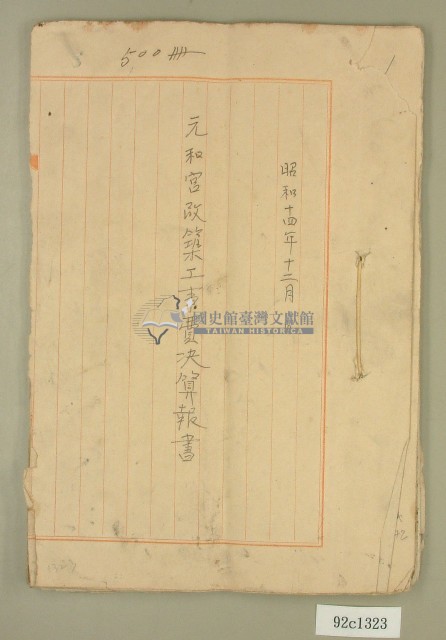 500冊
1
昭和十四年十二月
元和宮改築工事費決算報書
國史館臺灣文獻館
TAIWAN HISTORICA
92c1323